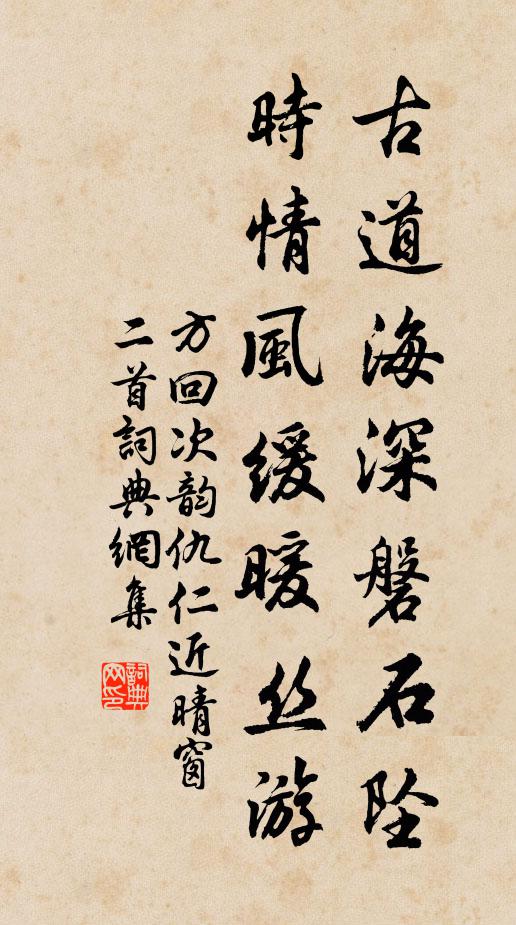 古道海深磐石坠
時情風缓暖丝游
方回次韵仇仁近晴窗
二首詞典網集
詞典网印